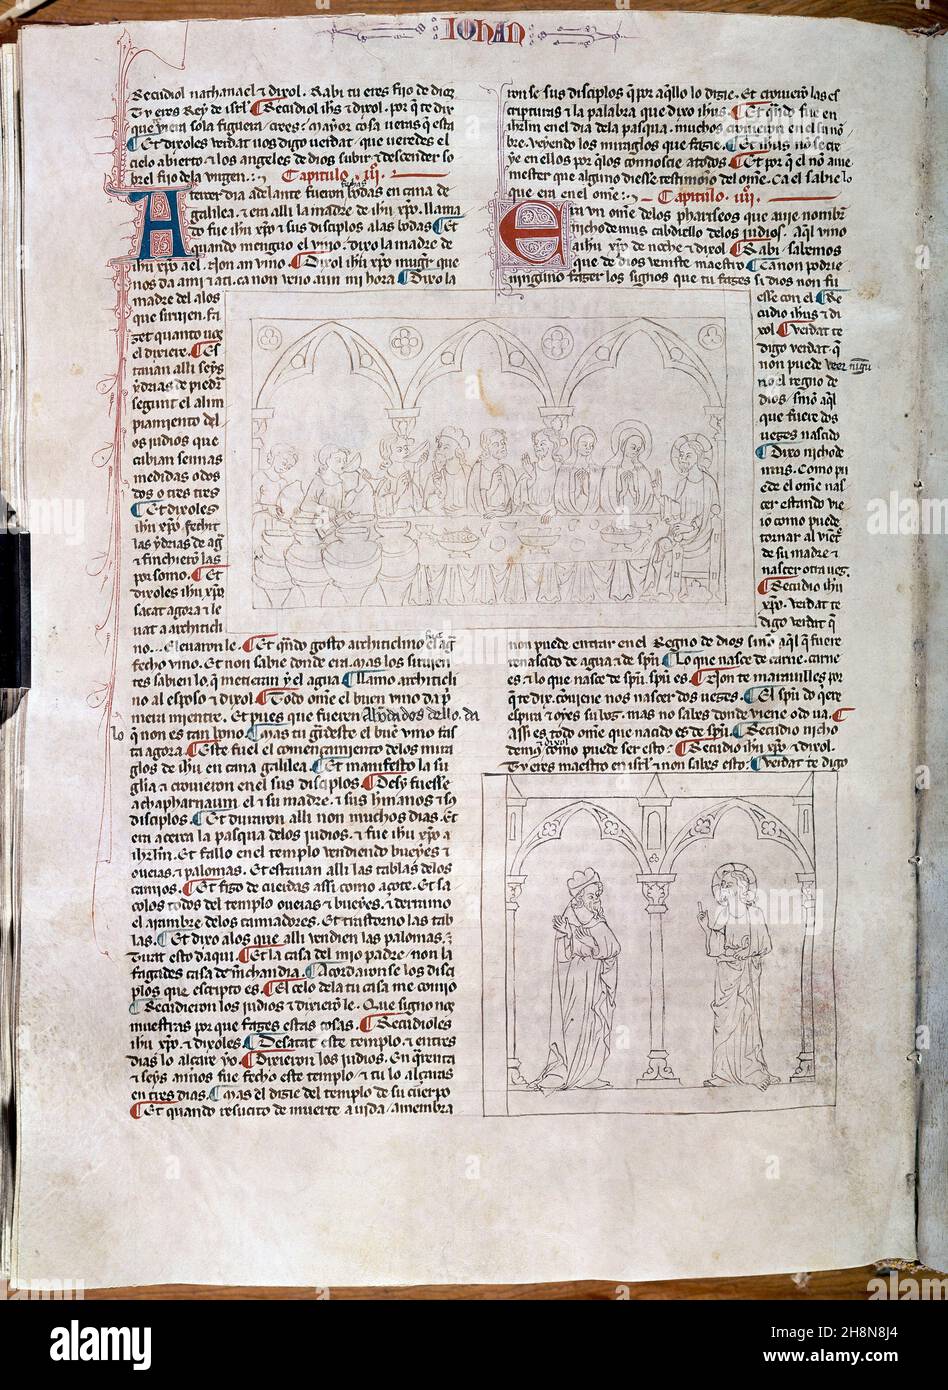 IOHAN
Recudiol nathanael & dixol. Rabi tu eres fijo de dios
Tu eres Rey de isrl. Recudiol ihus & dixol. por q te dix
que vi em sola figuera crees: mayor cosa veras q esta
Et dixoles verdat vos digo verdat, que veredes el
cielo abierto & los angeles de dios subir & descender so
brel fijo dela virgen: Capitulo .iij.
A tercer dia adelante fueron fechas bodas en cana de
galilea. & era alli la madre de ihu xpo. llama
do fue ihu xpo & sus disciplos alas bodas. Et
quando menguo el vino. dixo la madre de
ihu xpo ael. Non an vino. Dixol ihu xpo muger que
nos da ami & ati. ca non veno aun mi hora. Dixo la
madre del alos
que siruien. fa
zet quanto uos
el dixiere. Es
tauan alli seys
ydrias de piedra
segunt el alim
piamiento del
os judios que
cabian sennas
medidas o dos
dos o tres tres
Et dixoles
ihu xpo. fechit
las ydrias de ag
& finchieron las
por somo. Et
dixoles ihu
xpo
sacat agora & le
uat a architicli
no... leuaron le. Et qndo gosto architiclino el ag
fecho vino. Et non sabie donde era. mas los siruien
tes sabien lo. q metieran y el agua. llamo architicli
no al esposo & dixol. Todo ome el buen vino da p
mera mientre. Et pues que fueren dello. da
lo q non es tan bono. mas tu guardeste el buen vino fas
ta agora. Este fue el comenamiento delos mira
glos de ihu en cana galilea. Et manifesto la su
glia & crouieron en el sus disciplos. Desy fuesse
a chapharnaum. el & su madre. & sus hmanos & sus
disciplos. Et duraron alli non muchos dias. Et
era acerca la pasqua delos judios. & fue ihu xpo a
ihrlm. Et fallo en el templo vendiendo bueyes &
oueias & palomas. Et estauan alli las tablas delos
camios. Et fizo de cuerdas assi como açote. Et sa
colos todos del templo oueias & bueyes. & derramo
el arambre delos camiadores. Et trastorno las tab
las. Et dixo alos que alli vendien las palomas.
Tirat esto daqui. Et la casa del mio padre. non la
fagades casa de mchandia. Acordaron se los disci
plos que escripto es. El celo dela tu casa me comio
Recudieron los judios & dixieron le. Que signo nos
muestras por que fazes estas cosas. Recudioles
ihu xpo. & dixoles. Desatat este templo. & en tres
dias lo alçare yo. Dixieron los judios. En qrenta
& seys annos fue fecho este templo. & tu lo alçaras
en tres dias. mas el dizie del templo de su cuerpo
Et quando resucito de muerte a uida / amembra
ron se sus disciplos q por aqllo lo dizie. Et crouieron las es
cripturas & la palabra que dixo ihus. Et qndo fue en
ihrlm en el dia dela pasqua. muchos crouieron en el su no
bre. veyendo los miraglos que fazie. Et ihus no se cre
ye en ellos por q los connoscie a todos. Et por q el no auie
mester que alguno diesse testimonio del ome. Ca el sabie lo
que era en el ome: Capitulo .iiij.
Era un ome delos phariseos que auie nombre
nichodemus cabdiello delos judios. aql vino
a ihu xpo de noche & dixol. Rabi. sabemos
que de dios veniste maestro. Ca non podrie
ninguno fazer los signos que tu fazes si dios non fu
esse con el. Re
cudio ihus & di
xol. verdat te
digo verdat. q
non puede veer ningu
no el regno de
dios / sino aql
que fuere dos
vezes nascido
Dixo nichode
mus. Como pu
ede el ome nas
cer estando vie
io como puede
tornar al vietre
de su madre &
nascer otra uez.
Recudio ihu
xpo. verdat te
digo verdat q
non puede entrar en el Regno de dios sino aql q fuere
renascido de agua & de spu. Lo que nasce de carne. carne
es & lo que nasce de spu. spu es. Non te marauilles por
q te dix. conuiene nos nascer dos uezes. El spu do qere
espira & oyes su boz. mas no sabes donde viene o do ua.
Assi es todo ome que nacido es de spu. Recudio nicho
demus & dixol como puede ser esto: Recudio ihu xpo & dixol.
Tu eres maestro en isrl & non sabes esto. Verdat te digo
alamy
Image ID: 2H8N8J4
www.alamy.com